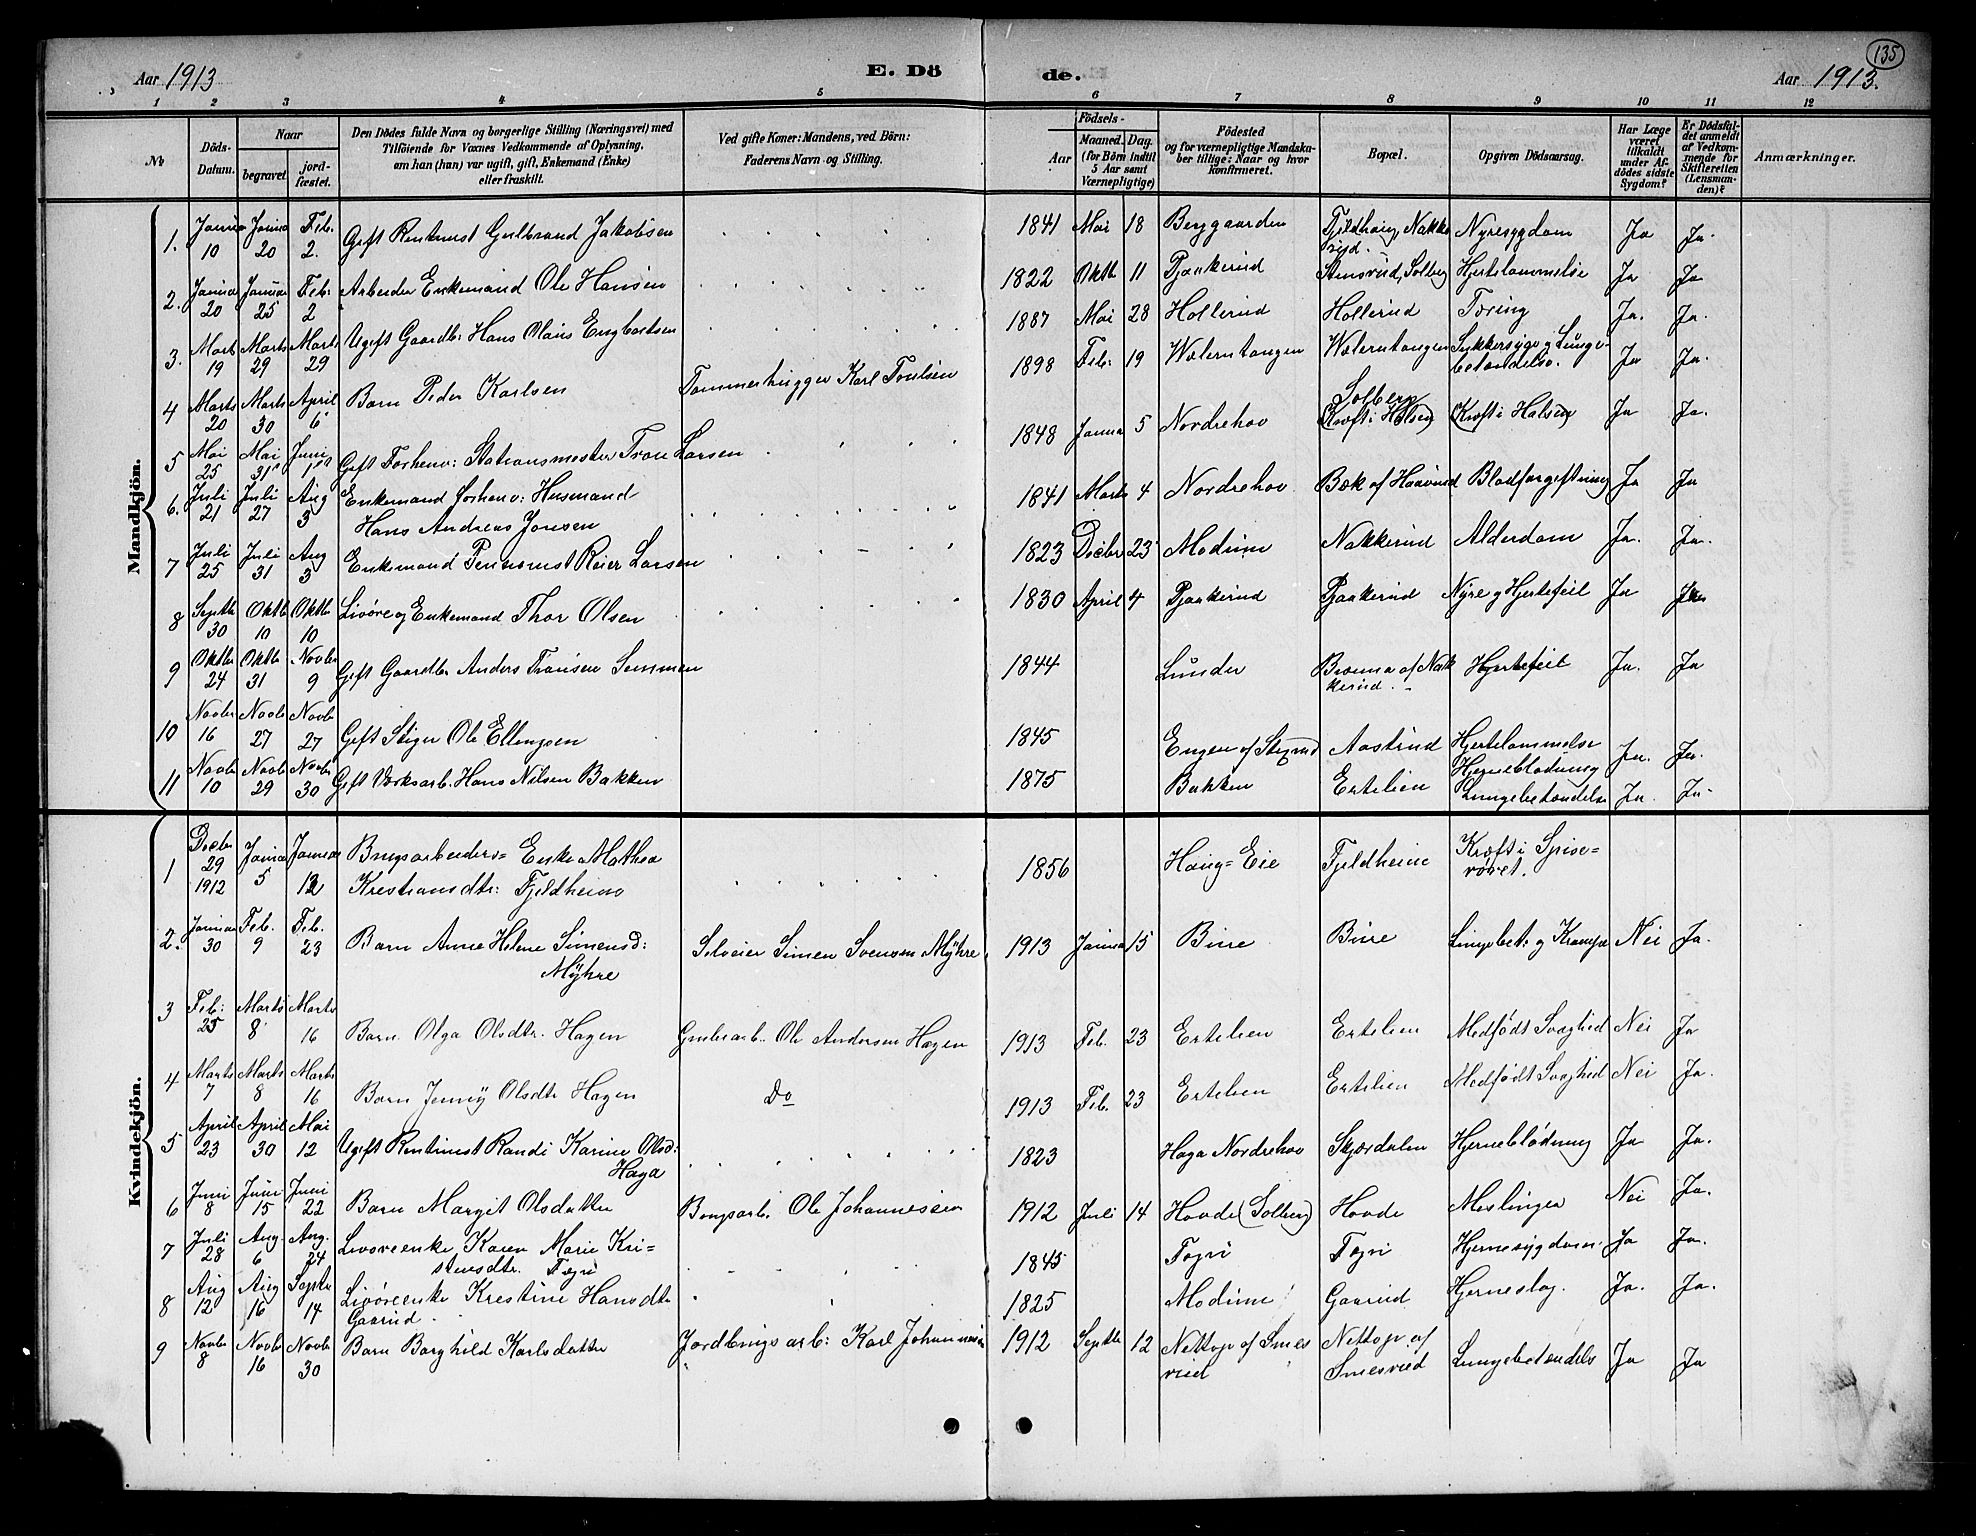 135
Aar 1913 E. Dö de. Aar 1913.
1 2 3 4 5 6 7 8 9 10 11 12
No Döds-Datum. Naar begravet jord-fæstet. Den Dödes fulde Navn og borgerlige Stilling (Næringsvei) med Tilföiende for Voxnes Vedkommende af Oplysning, om han (hun) var ugift, gift, Enkemand (Enke) eller fraskilt. Ved gifte Koner: Mandens, ved Börn: Faderens Navn og Stilling. Födsels- Aar Maaned. Dag. (for Börn indtil 5 Aar samt Værnepligtige) Födested og for værnepligtige Mandskaber tillige: Naar og hvor konfirmeret. Bopæl. Opgiven Dödsaarsag. Har Læge været tilkaldt under Afdödes sidste Sygdom? Er Dödsfaldet anmeldt af Vedkommende for Skifteretten (Lensmanden)? Anmærkninger.
Mandkjön.
1. Januar 10 Januar 20 Feb. 2. Gift Rentenist Gulbrand Jakobsen 1841 Mai 18 Berggaarden Fjeldhaug, Nakkerud. Nyresygdom Ja Ja.
2. Januar 20 Januar 25 Feb: 2 Arbeider Enkemand Ole Hansen 1822 Oktb 11 Pjaakerud Stensrud, Solberg Hjertelammelse Ja Ja
3. Marts 19 Marts 29 Marts 29 Ugift Gaardb: Hans Olaus Engbretsen 1887 Mai 28 Hollerud Hollerud Tæring Ja. Ja.
4 Marts 20 Marts 30 April 6 Barn Peder Karlsen Tømmerhugger Karl Toulsen 1898 Feb: 19 Wælerntangen Wælerntangen Sukkersyge og Lungebetændelse. Ja Ja.
5 Mai 25 Mai 31 Juni 1 Gift Forhenv: Stationsmester Tron Larsen 1848 Januar 5 Nordrehov Solberg (Kræft i Halsen) (Kræft i Halsen) Ja Ja.
6. Juli 21 Juli 27 Aug 3 Enkemand forhenv: Husmand Hans Andreas Jonsen 1841 Marts 4 Nordrehov Bæk af Haavrud Blodforgiftning Ja Ja
7 Juli 25 Juli 31 Aug 3 Enkemand Pensionist Reier Larsen 1823 Decbr 23 Modum Nakkerud Alderdom Ja. Ja.
8 Septb 30 Oktb 10 Oktb 10 Livøre og Enkemand Thor Olsen 1830 April 4 Pjaakerud Pjaakerud Nyre og Hjertefeil Ja
9 Oktbr 24 Oktb 31 Novbr 9 Gift Gaardbr Anders Tronsen Semmen 1844 Lunder Braana af Nakkerud. Hjertefeil Ja. Ja
10 Novbr 16 Novb 27 Novb 27 Gift Stiger Ole Ellingsen 1845 Engen af Aastrud Hjertelammelse Ja. Ja.
11 Novb 10 Novb 29 Novbr 30 Gift Værksarb. Hans Nilsen Bakken 1875 Bakken Ertelien Hjerneblødning Lungebetændelse Ja. Ja
Kvindekjön.
1 Decbr 29 1912 Januar 5 Januar 12 Brugsarbeiders= Enke Mathea Kristiansdtr: Fjeldheim 1856 Haug=Eie Fjeldheim Kræft i Spiserøret.
2. Januar 30 Feb. 9 Feb. 23 Barn Anne Helene Simensd: Myhre Selveier Simen Svensen Myhre 1913 Januar 15 Bure Bure Lungebet: og Krampe Nei Ja.
3 Feb: 25 Marts 8 Marts 16 Barn Olga Olsdtr. Hagen Grubearb. Ole Andersen Hagen 1913 Feb. 23 Ertelien Ertelien Medfødt Svaghed Nei Ja
4 Marts 7 Marts 8 Marts 16 Barn Jenny Olsdtr Hagen Do 1913 Feb. 23 Ertelien Ertelien Medfødt Svaghed Nei Ja.
5 April 23 April 30 Mai 12 Ugift Rentenist Randi Karine Olsd: Haga 1823 Haga Nordrehov Skjærdalen Hjerneblødning Ja Ja.
6 Juni 8 Juni 15 Juni 22 Barn Margit Olsdatter Brugsarb. Ole Johannesen 1912 Juli 14 Hovde (Solberg) Hovde Meslinger Nei Ja.
7 Juli 28 Aug. 6 Aug. 24 Livøreenke Karen Marie Kristensdtr. Fagri 1845 Fagri Fagri Hjernesygdom Ja Ja.
8 Aug 12 Aug 16 Septr 14 Livøreenke Kristine Hansdtr Gaarud. 1825 Modum Gaarud Hjerneslag. Ja. Ja.
9 Novbr 8 Novb 16 Novb 30 Barn Borghild Karlsdatter Jordbrugsarb: Karl Johannesen 1912 Septb 12 Nettop af Smesrud Nettop af Smesrud Lungebetændels Ja Ja